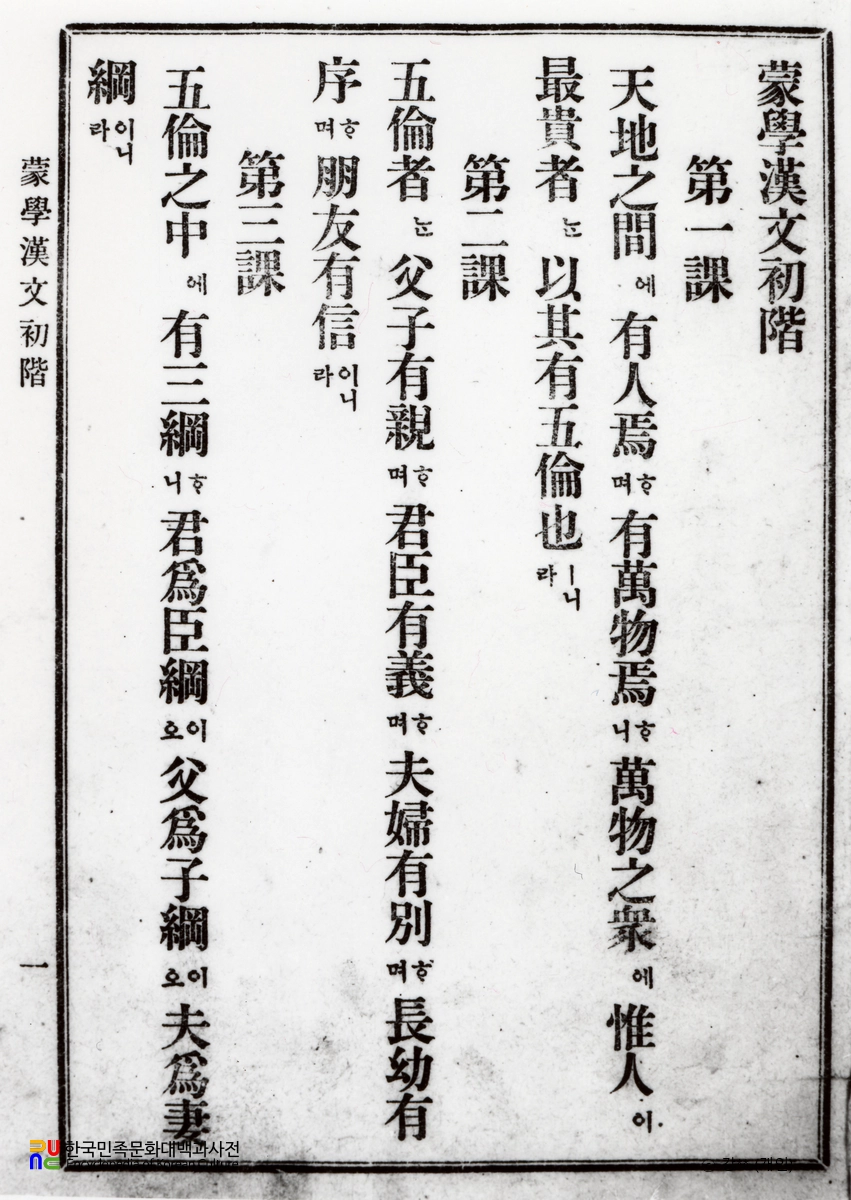 蒙學漢文初階
第一課
天地之間에有人焉ᄒᆞ며有萬物焉ᄒᆞ니萬物之衆에惟人이
最貴者ᄂᆞᆫ以其有五倫也ㅣ니라
第二課
五倫者ᄂᆞᆫ父子有親ᄒᆞ며君臣有義ᄒᆞ며夫婦有別ᄒᆞ며長幼有
序ᄒᆞ며朋友有信이니라
第三課
五倫之中에有三綱ᄒᆞ니君爲臣綱이오父爲子綱이오夫爲妻
綱이니라
蒙學漢文初階
一
한국민족문화대백과사전
Encyclopedia of Korean Culture